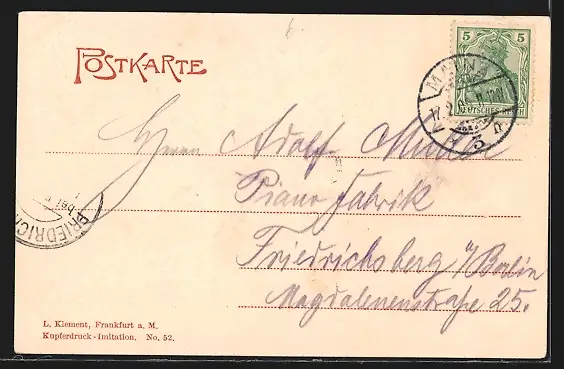 POSTKARTE
5 5
DEUTSCHES REICH
MAINZ
17.
3 n
Herrn Adolf Müller
Piano Fabrik
Friedrichsberg b/Berlin
Magdalenenstraße 25.
FRIEDRICH
bei
L. Klement, Frankfurt a. M.
Kupferdruck-Imitation. No. 52.